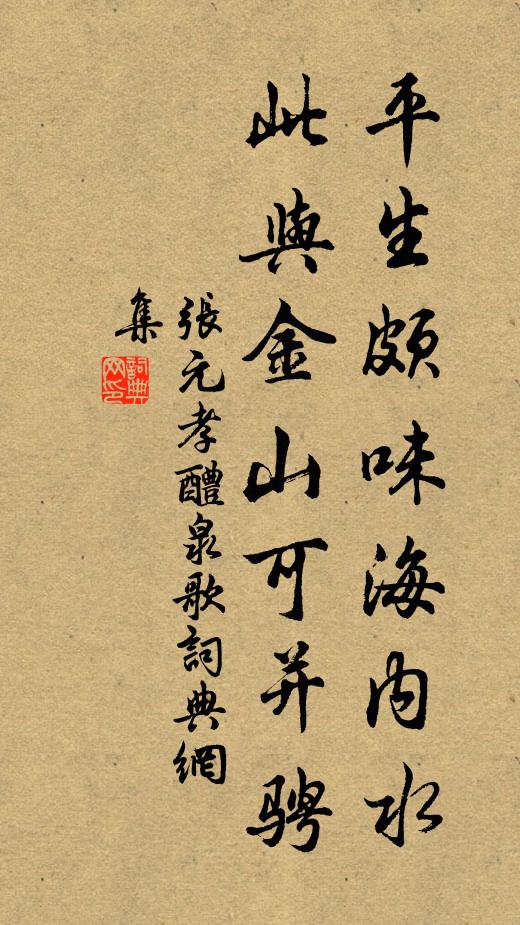 平生頗味海内水
此與金山可并骋
張元孝醴泉歌詞典網
集
詞典
网印